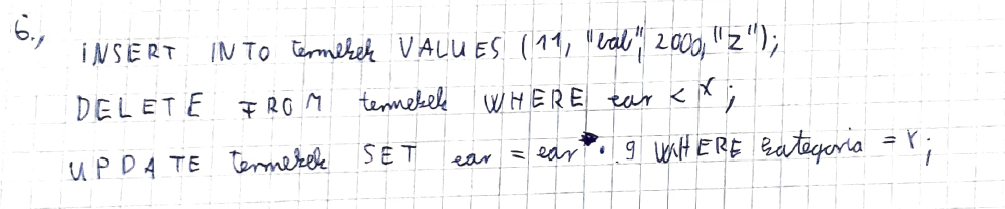 6.,
INSERT INTO termekek VALUES (11, "val", 2000, "z");
DELETE FROM termekek WHERE ear < X;
UPDATE termekek SET ear = ear * . 9 WHERE kategoria = Y;